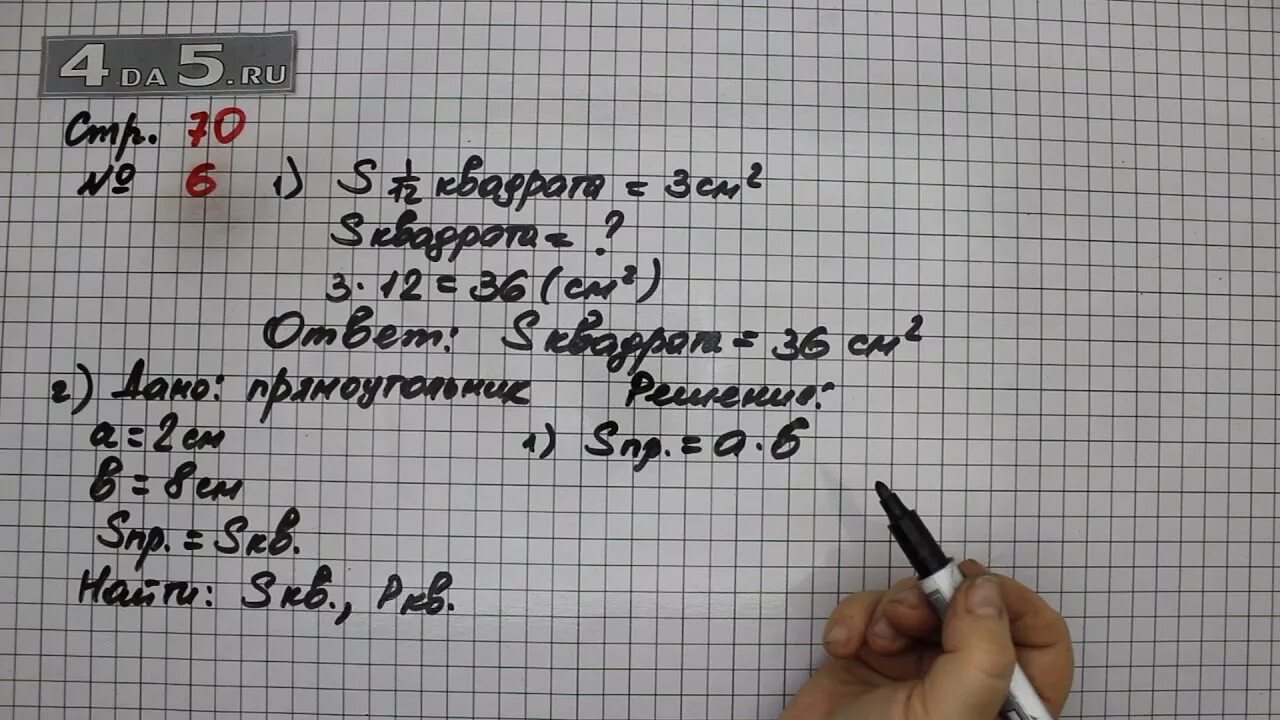 4DA5.RU
Стр. 70
№ 6 1) S 1/12 квадрата = 3 см²
S квадрата = ?
3 · 12 = 36 (см²)
Ответ: S квадрата = 36 см²
2) Дано: прямоугольник
a = 2 см
в = 8 см
Sпр. = Sкв.
Найти: Sкв., Pкв.
Решение:
1) Sпр. = a · б